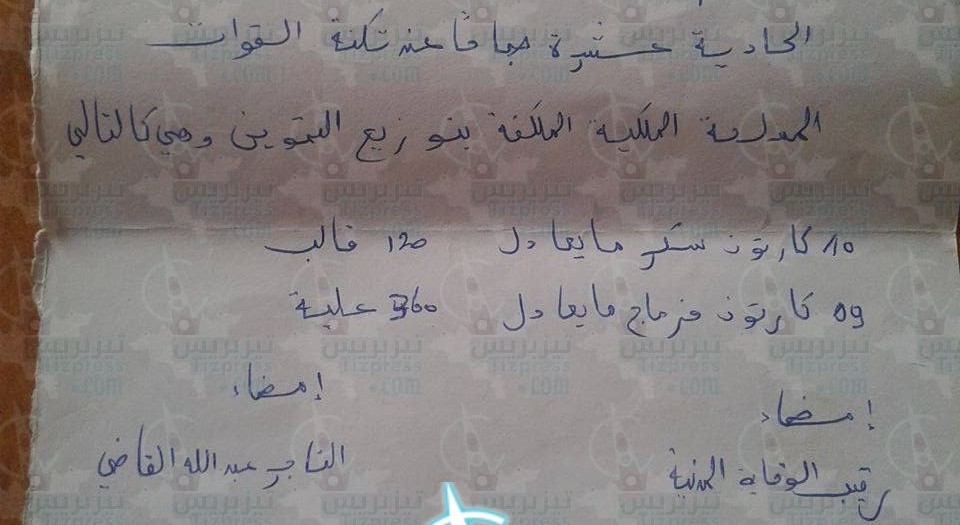 الحادية عشرة صباحا عند ثكنة القوات
المسلحة الملكية المكلفة بتوزيع التموين وهي كالتالي
10 كارتون سكر مايعادل 120 قالب
09 كارتون فرماج مايعادل 360 علبة
إمضاء
إمضاء
التاجر عبد الله القاضي
رقيب الوقاية المدنية
تيزبريس
Tizpress
.com